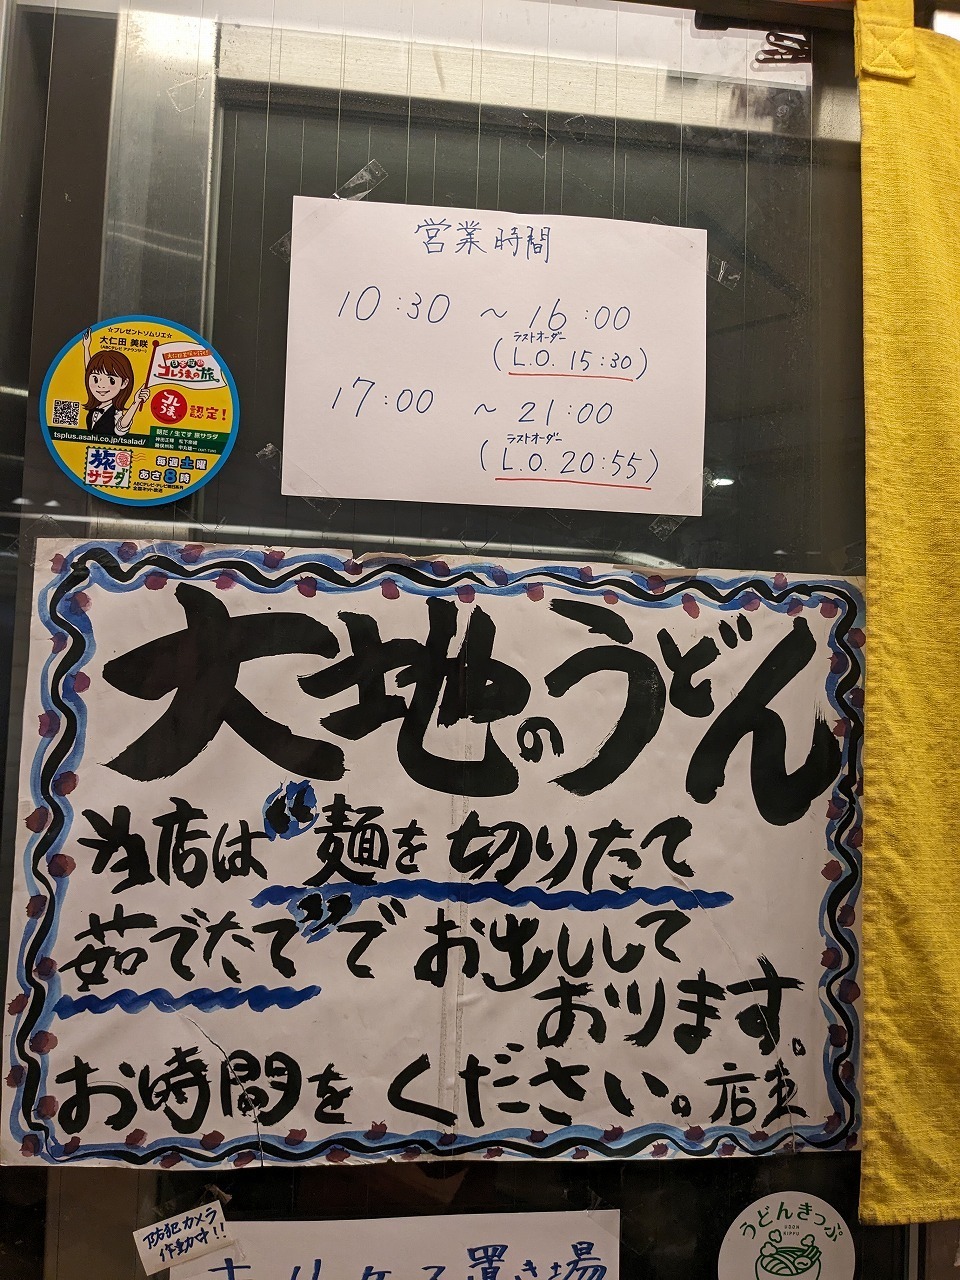 営業時間
10:30 ~ 16:00
ラストオーダー
(L.O. 15:30)
17:00 ~ 21:00
ラストオーダー
(L.O. 20:55)
☆プレゼントソムリエ☆
大仁田 美咲
(ABCテレビ アナウンサー)
コレうまの旅
コレうま 認定!
tsplus.asahi.co.jp/tsalad/
朝だ!生です 旅サラダ
旅サラダ
毎週土曜
あさ8時
大地のうどん
当店は“麺を切りたて
茹でたて”でお出しして
おります。
お時間をください。店主
防犯カメラ
作動中!!
うどんきっぷ
UDON
KIPPU
置き場